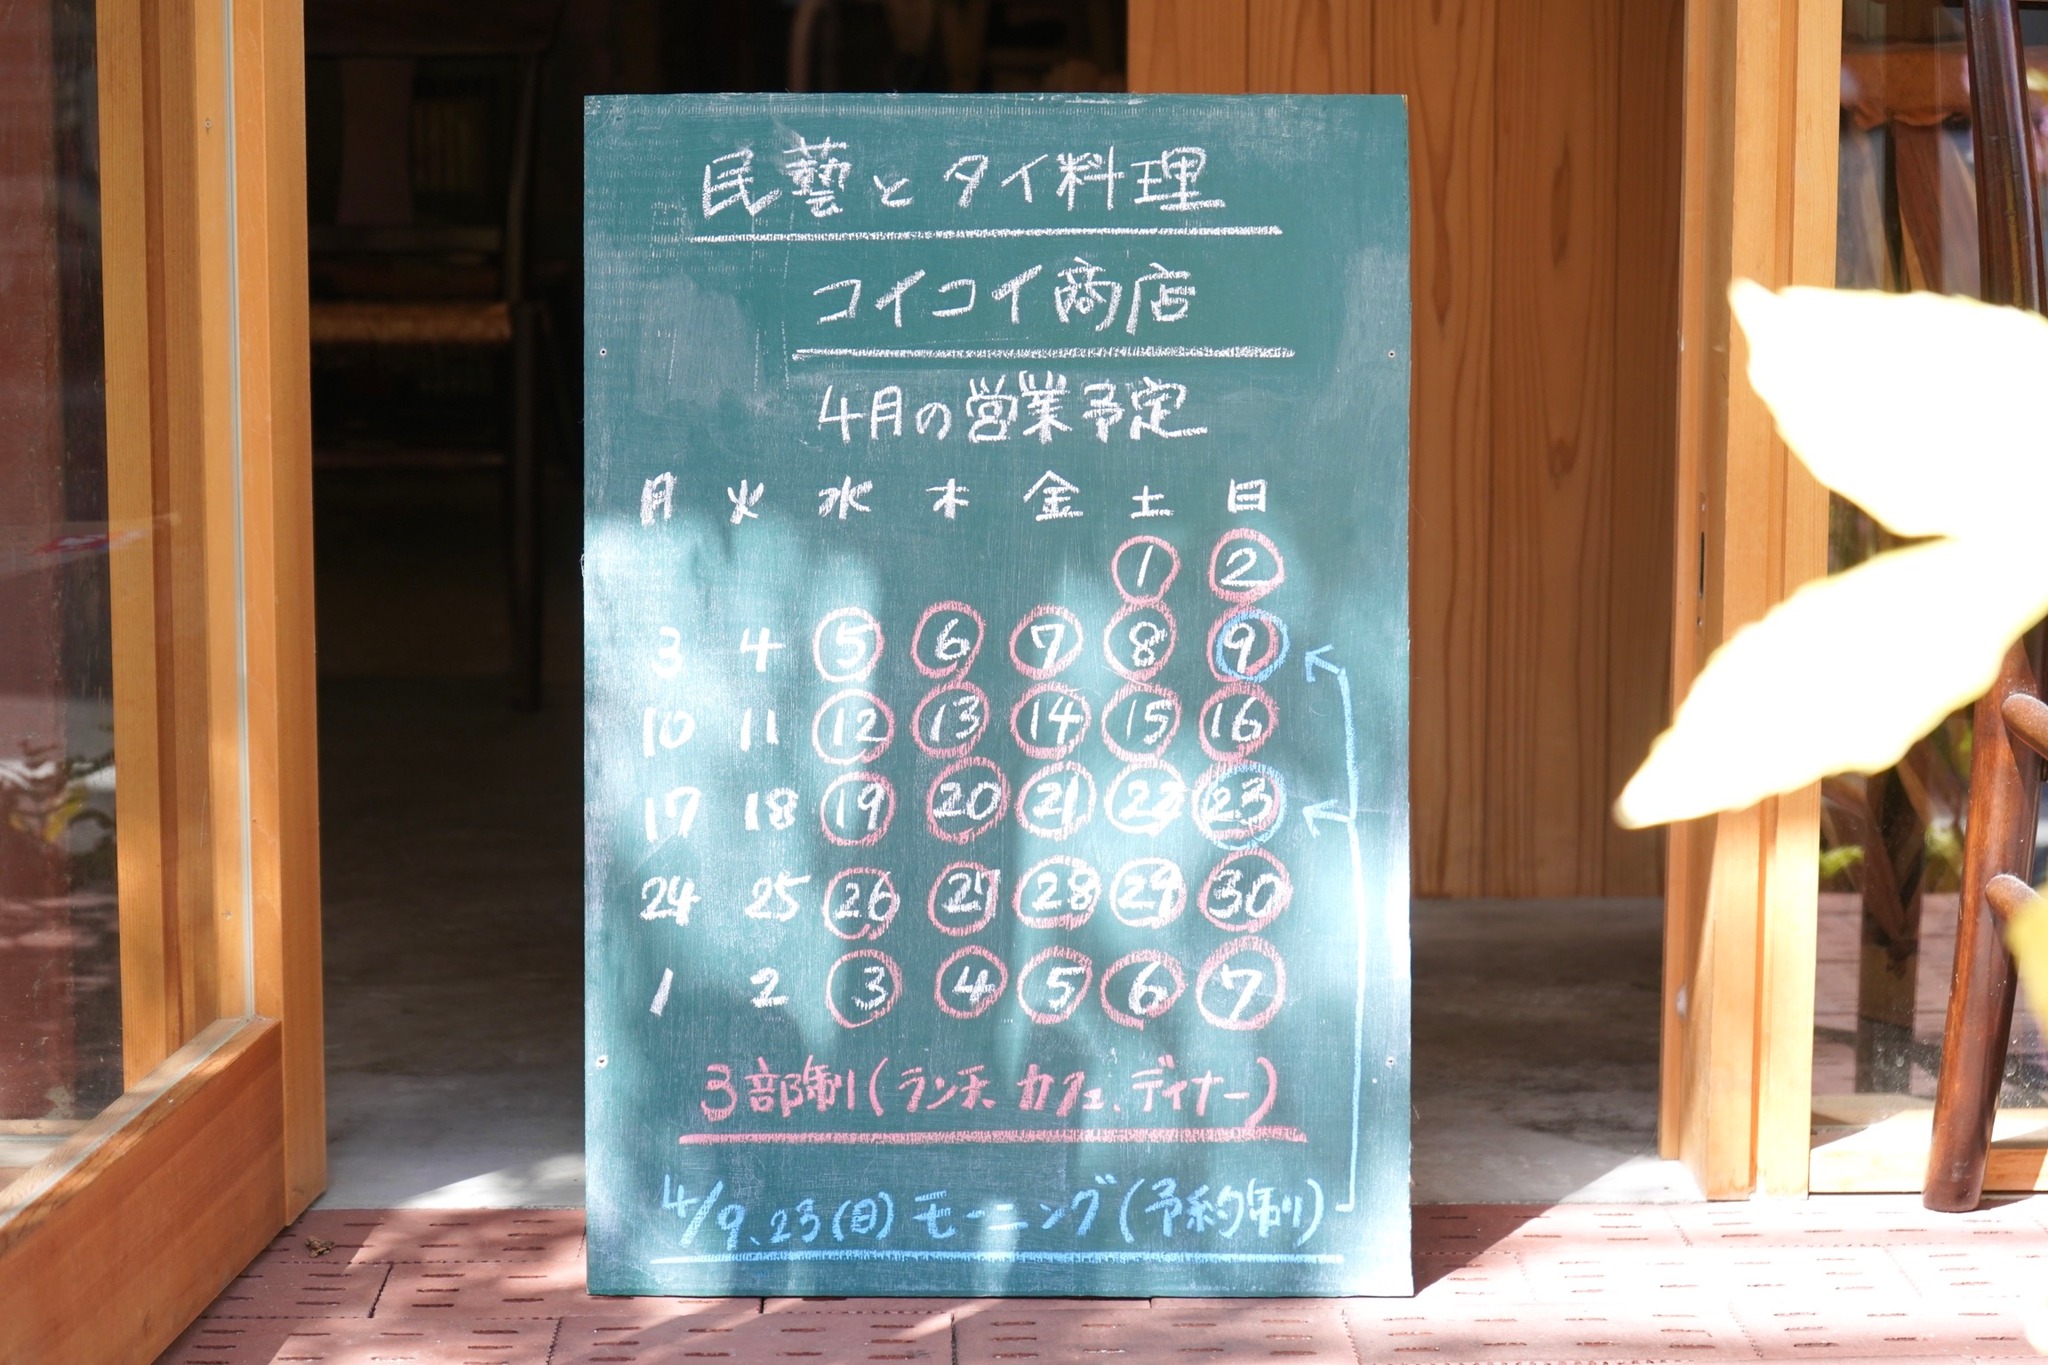 民藝とタイ料理
コイコイ商店
4月の営業予定
月 火 水 木 金 土 日
1 2
3 4 5 6 7 8 9
10 11 12 13 14 15 16
17 18 19 20 21 22 23
24 25 26 27 28 29 30
1 2 3 4 5 6 7
3部制(ランチ、カフェ、ディナー)
4/9.23(日)モーニング(予約制)